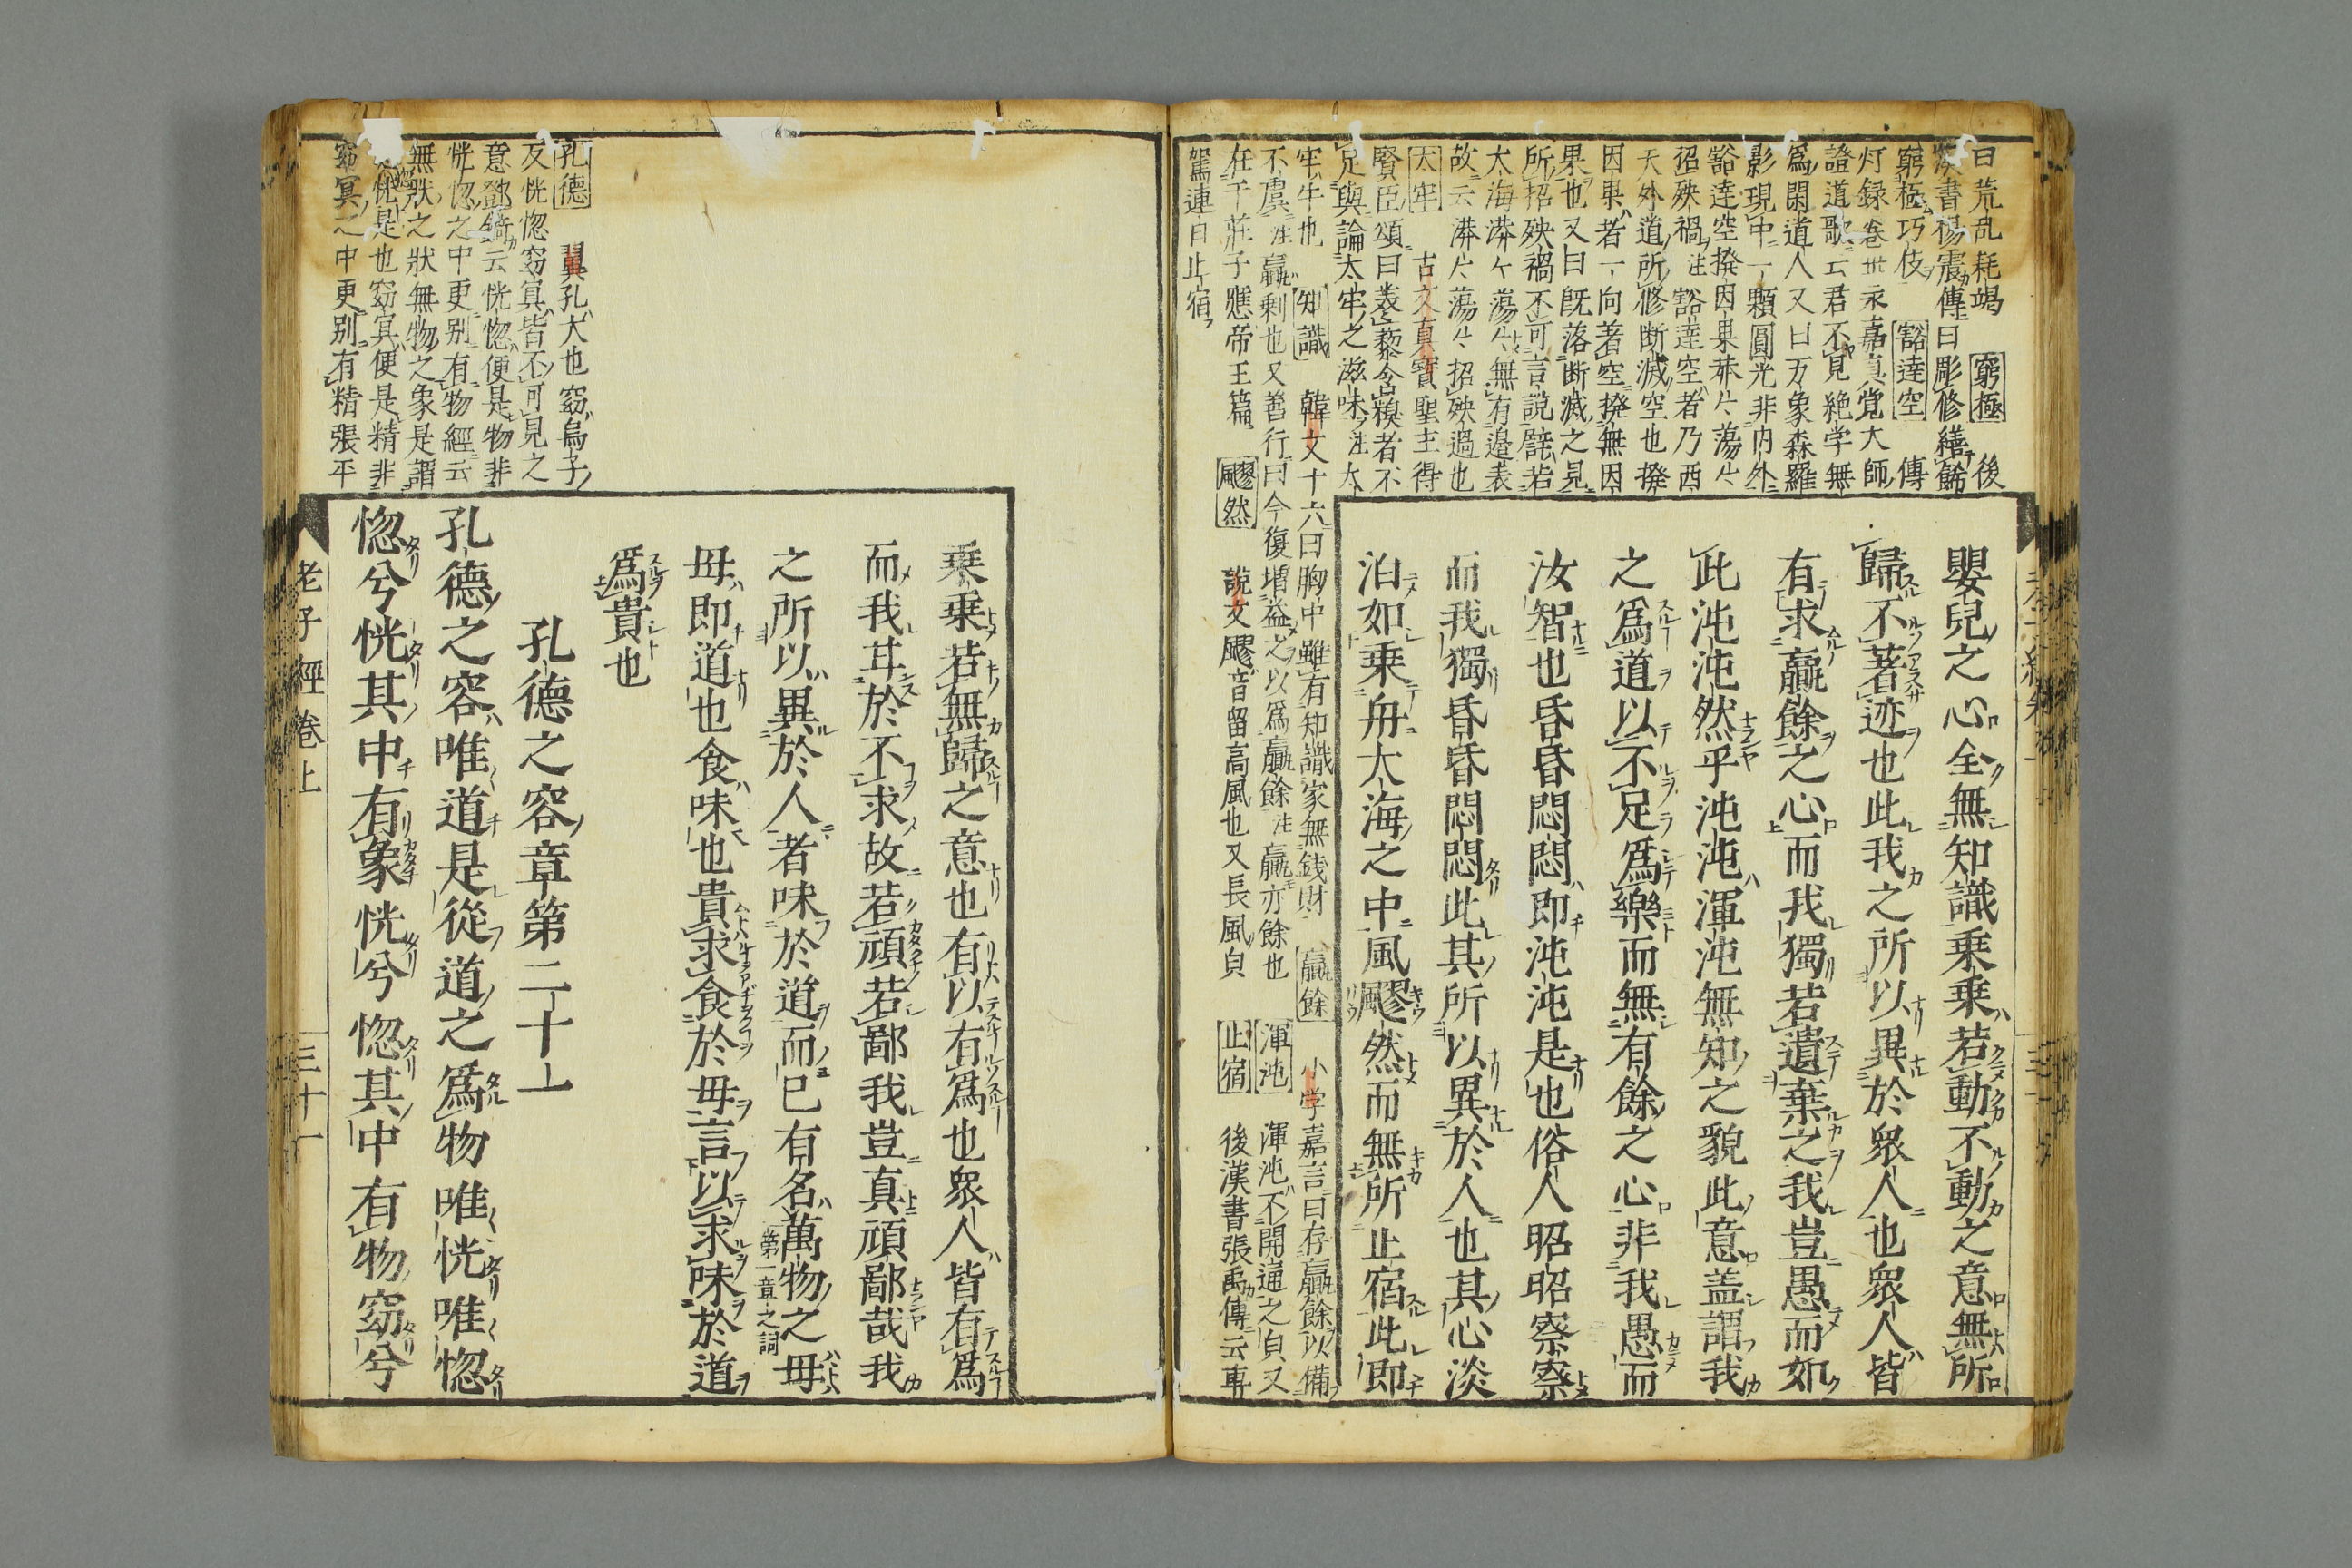 曰荒乱耗竭 窮極 後
漢書楊震傳曰彫修繕餝
窮極巧伎 豁達空 傳
灯録卷卅永嘉真覚大師
證道歌云君不見絶学無
為閑道人又曰万象森羅
影現中一顆圓光非内外
豁達空撥因果莽々蕩々
招殃禍注豁達空者乃西
天外道所修断滅空也撥
因果者一向著空撥無因
果也又曰既落断滅之見
所招殃禍不可言説譬若
大海漭々蕩々無有邉表
故云漭々蕩々招殃過也
太牢 古文真寳聖主得
賢臣頌曰羨藜含糗者不
足與論太牢之滋味注太
牢牛也 知識 韓文十六曰胸中雖有知識家無銭財 贏餘 小学嘉言曰存贏餘以備
不虞注贏剰也又善行曰今復増益之以為贏餘注贏亦餘也 渾沌 渾沌不開通之皃又
在于荘子應帝王篇 飂然 説文飂音留高風也又長風皃 止宿 後漢書張禹傳云車
駕連日止宿
嬰兒之心全無知識乗乗若動不動之意無所
歸不著迹也此我之所以異於衆人也衆人皆
有求贏餘之心而我獨若遺棄之我豈愚而如
此沌沌然乎沌沌渾沌無知之貌此意盖謂我
之為道以不足為樂而無有餘之心非我愚而
汝智也昏昏悶悶即沌沌是也俗人昭昭察察
而我獨昏昏悶悶此其所以異於人也其心淡
泊如乗舟大海之中風飂然而無所止宿此即
乗乗若無歸之意也有以有為也衆人皆有為
而我甘於不求故若頑若鄙我豈真頑鄙哉我
之所以異於人者味於道而已有名萬物之母
第一章之詞
母即道也食味也貴求食於母言以求味於道
為貴也
孔德之容章第二十一
孔德之容唯道是從道之為物唯恍唯惚
惚兮恍其中有象恍兮惚其中有物窈兮
孔德 翼孔大也窈烏子
反恍惚窈冥皆不可見之
意鄧錡云恍惚便是物非
恍惚之中更别有物經云
無状之状無物之象是謂
恍是也窈冥便是精非
窈冥之中更别有精張平
老子經卷上
三十一